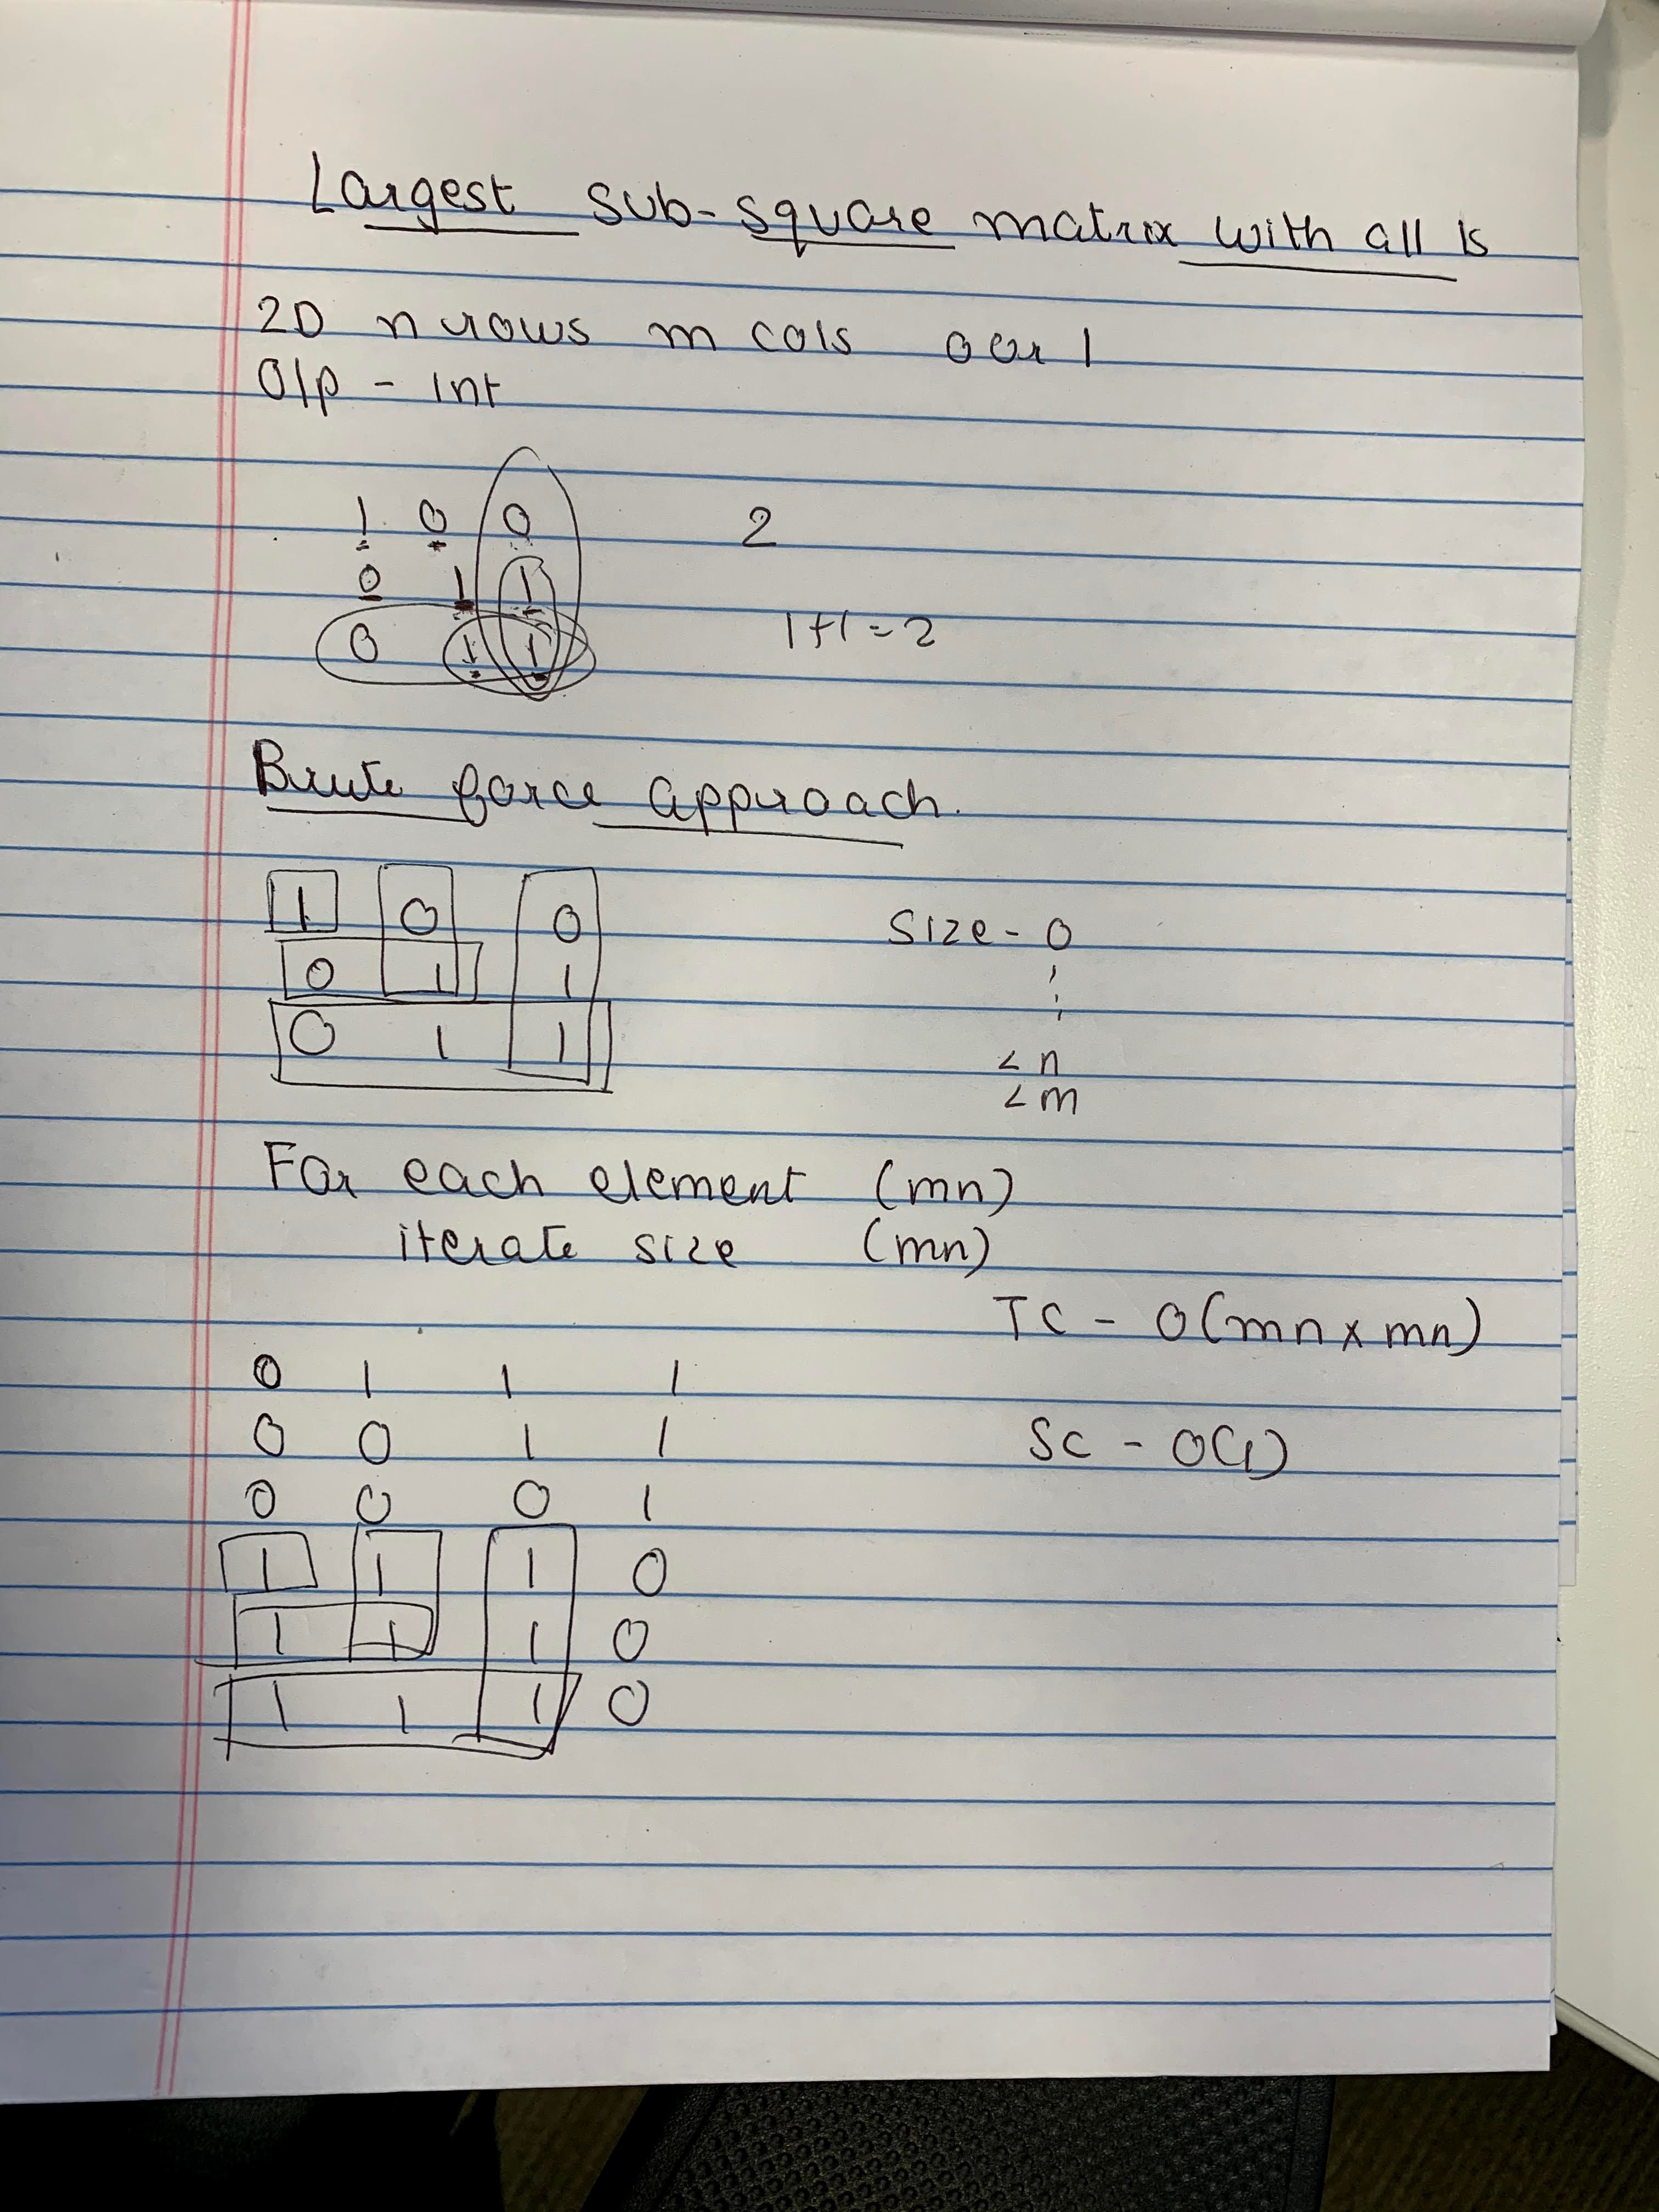 Largest sub-square matrix with all 1s
2D n rows m cols 0 or 1
O/p - Int
1 0 0 2
0 1 1
0 1 1 1+1=2
Brute force approach.
1 0 0 Size - 0
0 1 1
0 1 1 < n
< m
For each element (mn)
iterate size (mn)
TC - O(mn x mn)
0 1 1 1
0 0 1 1 SC - O(1)
0 0 0 1
1 1 1 0
1 1 1 0
1 1 1 0